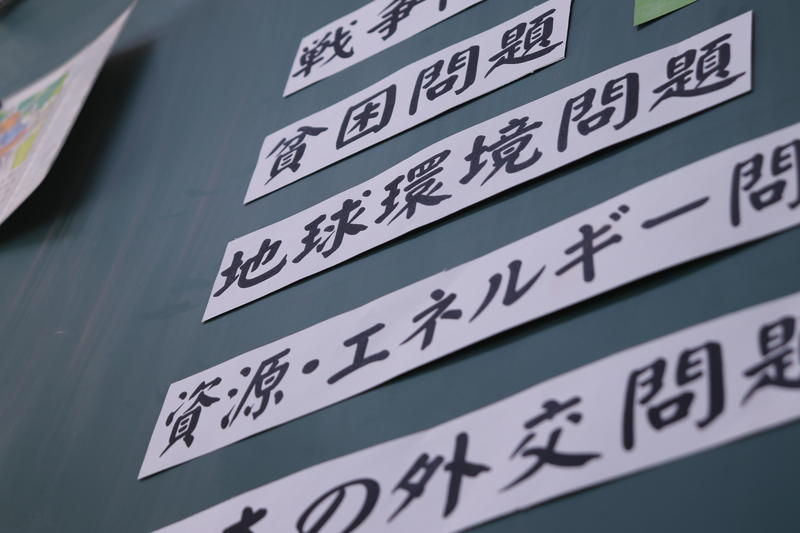 戦争
貧困問題
地球環境問題
資源・エネルギー問
の外交問題